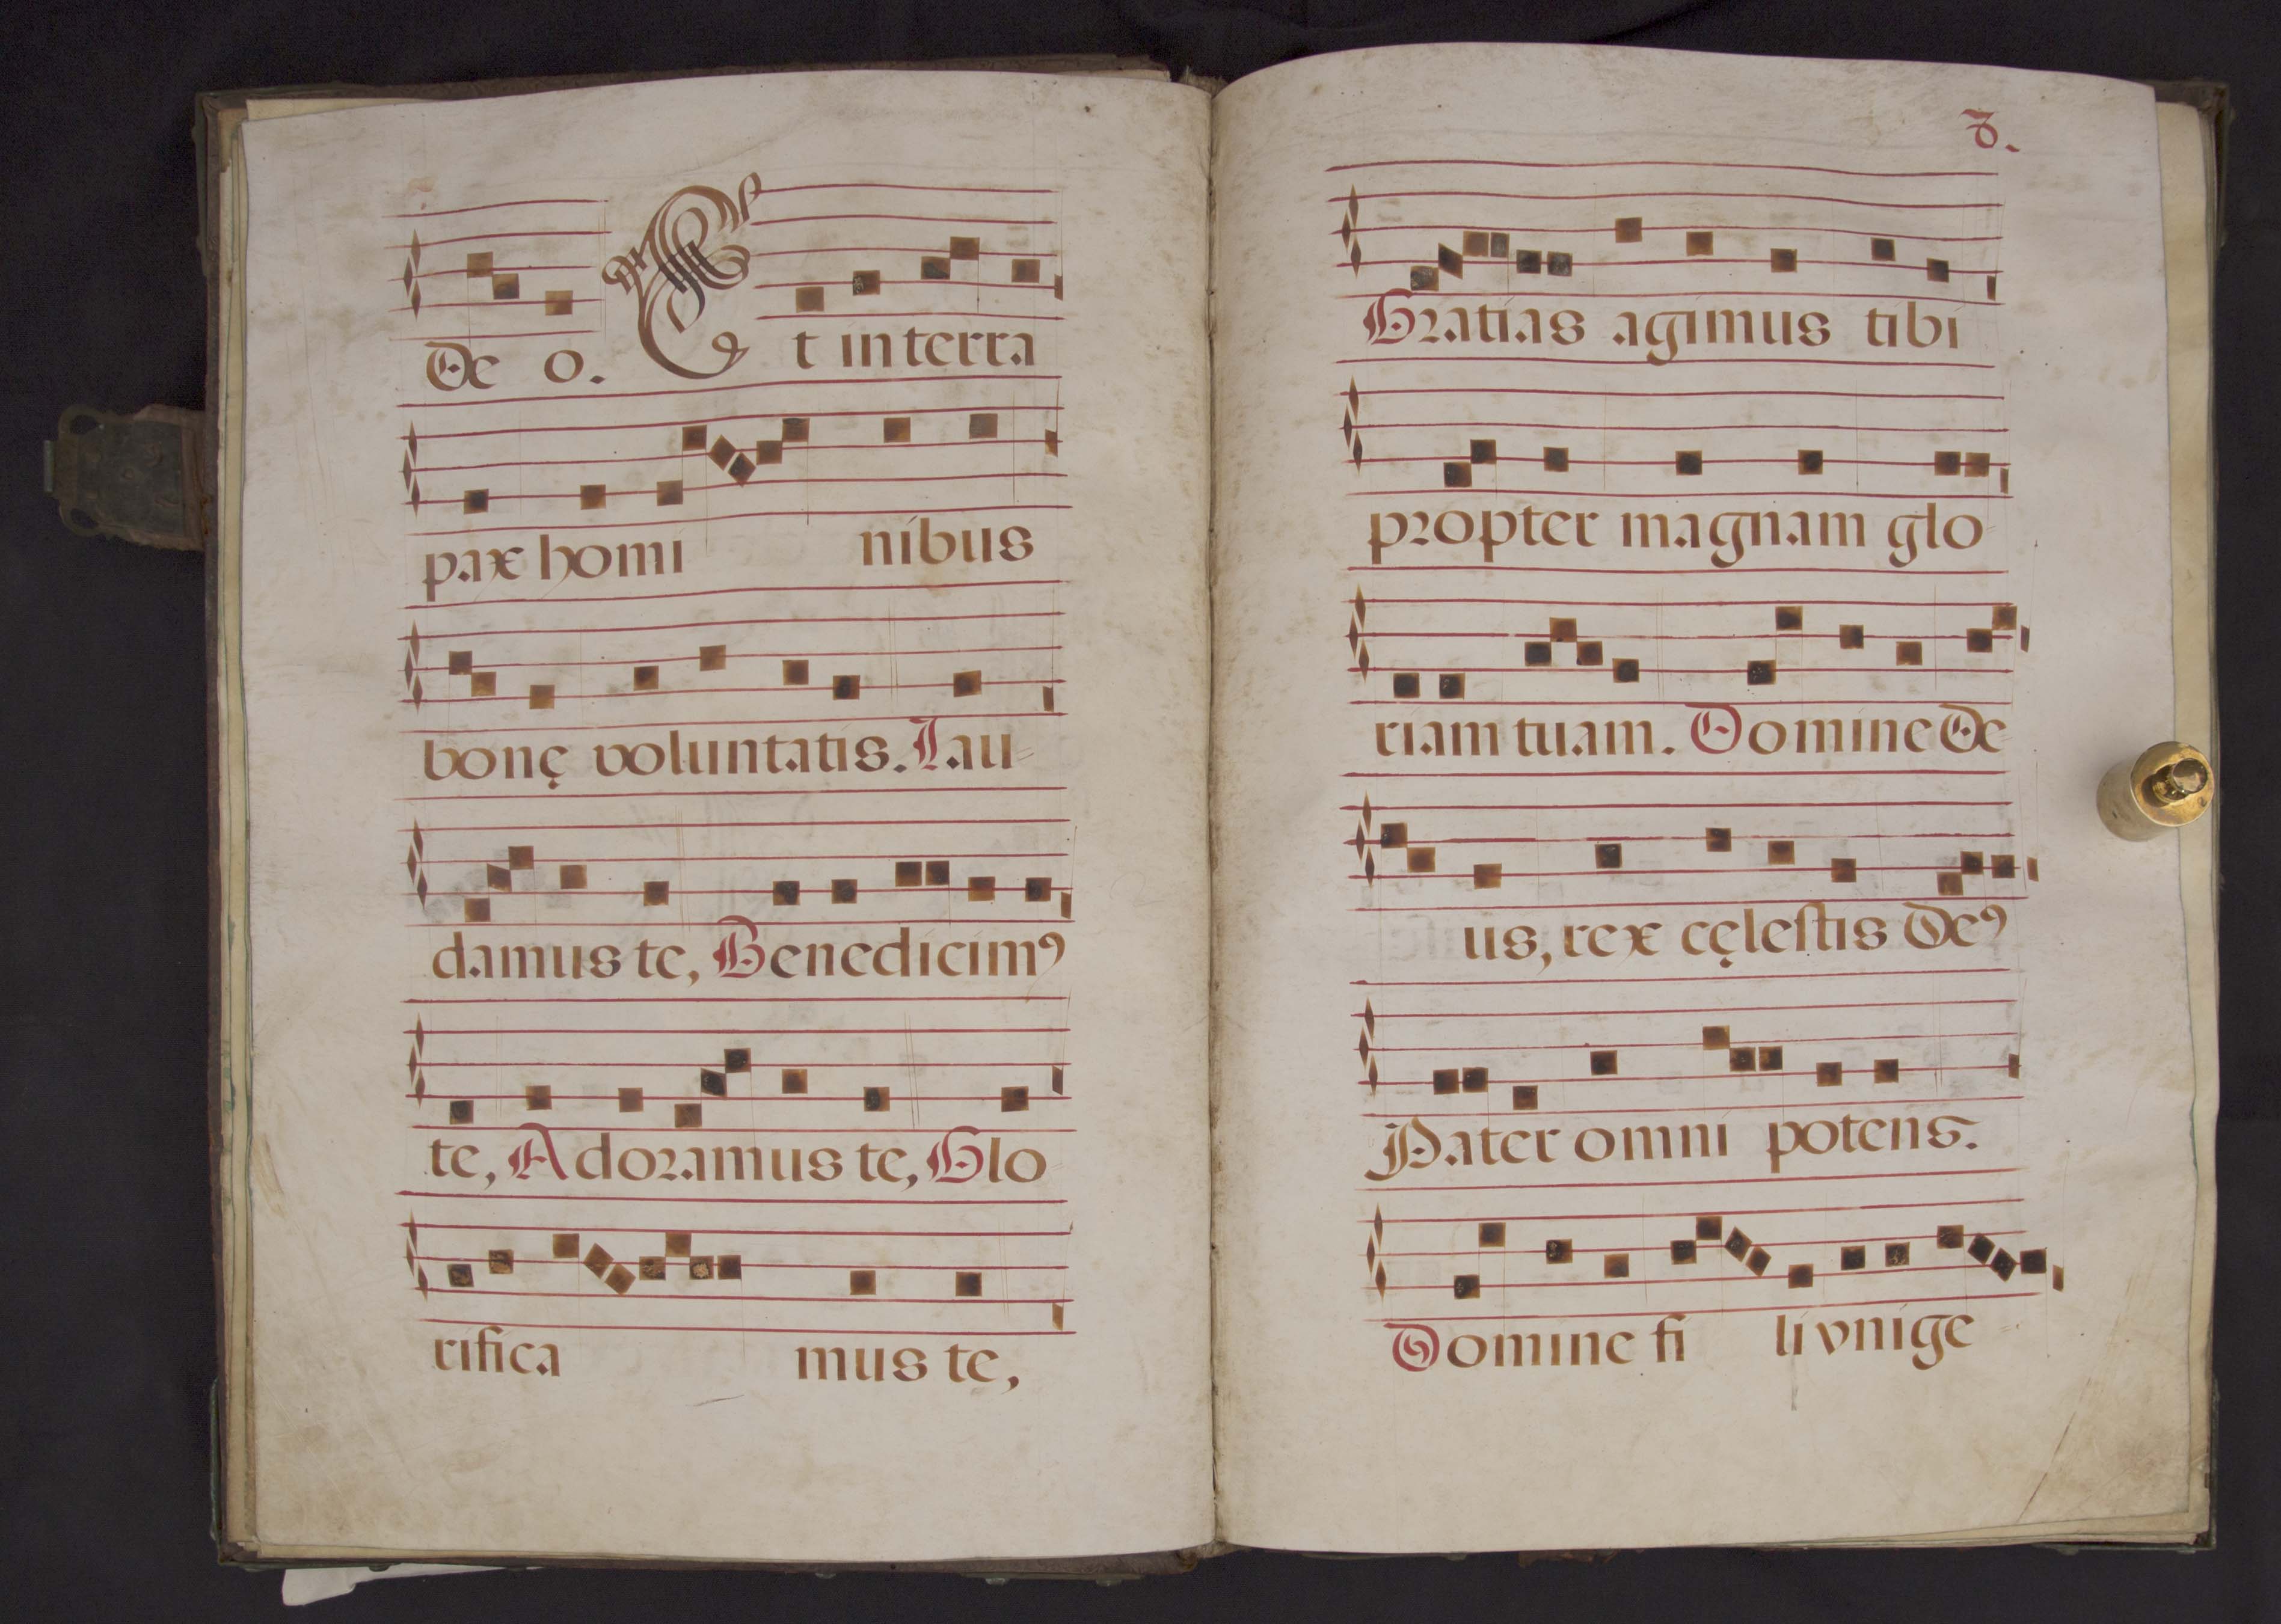 De o. Et in terra
pax homi nibus
bonę voluntatis. Lau=
damus te, Benedicimꝰ
te, Adoramus te, Glo
rifica mus te,
8.
Gratias agimus tibi
propter magnam glo=
riam tuam. Domine De
us, rex cęleſtis Deꝰ
Pater omni potens.
Domine fi li vnige=